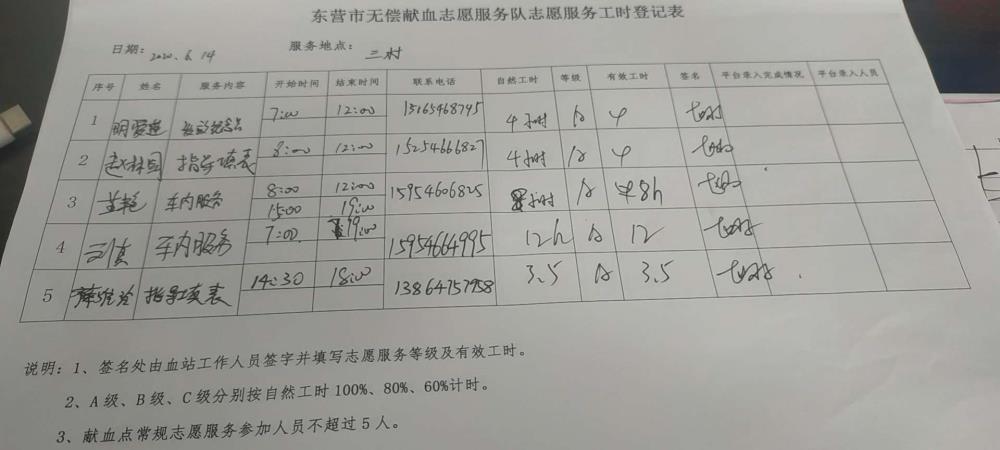 东营市无偿献血志愿服务队志愿服务工时登记表
日期：2020.6.14 服务地点：三村
序号 姓名 服务内容 开始时间 结束时间 联系电话 自然工时 等级 有效工时 签名 平台录入完成情况 平台录入人员
1 明爱莲 7:00 12:00 15165468795 4小时 A 4
2 赵林国 指导填表 8:00 12:00 15254666827 4小时 A 4
3 车内服务 8:00 12:00 15954606825 小时 A 8h
15:00 19:00
4 车内服务 7:00 19:00 15954664995 12h A 12
5 指导填表 14:30 18:00 13864757958 3.5 A 3.5
说明：1、签名处由血站工作人员签字并填写志愿服务等级及有效工时。
2、A级、B级、C级分别按自然工时100%、80%、60%计时。
3、献血点常规志愿服务参加人员不超过5人。